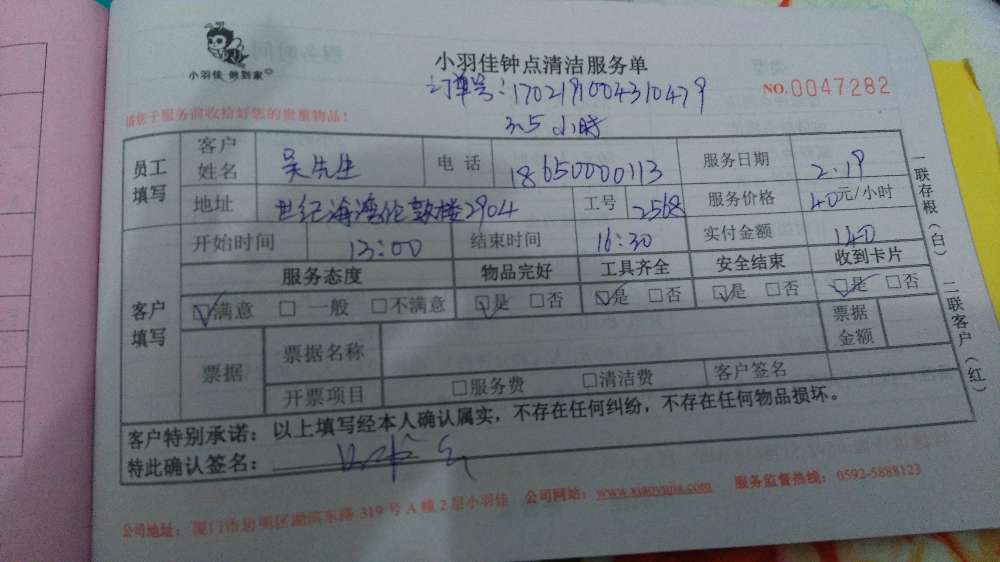 小羽佳 做到家
小羽佳钟点清洁服务单
NO.0047282
订单号:1702191004310479
3.5小时
请您于服务前收拾好您的贵重物品!
员工填写 客户姓名 吴先生 电话 18650000113 服务日期 2.19
地址 世纪海湾伦敦楼2904 工号 2568 服务价格 40元/小时
客户填写 开始时间 13:00 结束时间 16:30 实付金额 140
服务态度 物品完好 工具齐全 安全结束 收到卡片
☑满意 □一般 □不满意 ☑是 □否 ☑是 □否 ☑是 □否 ☑是 □否
票据 票据名称 票据金额
开票项目 □服务费 □清洁费 客户签名
客户特别承诺:以上填写经本人确认属实,不存在任何纠纷,不存在任何物品损坏。
特此确认签名:
一联存根(白) 二联客户(红)
公司地址:厦门市思明区湖滨东路319号A幢2层小羽佳 公司网站:www.xiaoyujia.com 服务监督热线:0592-5888123